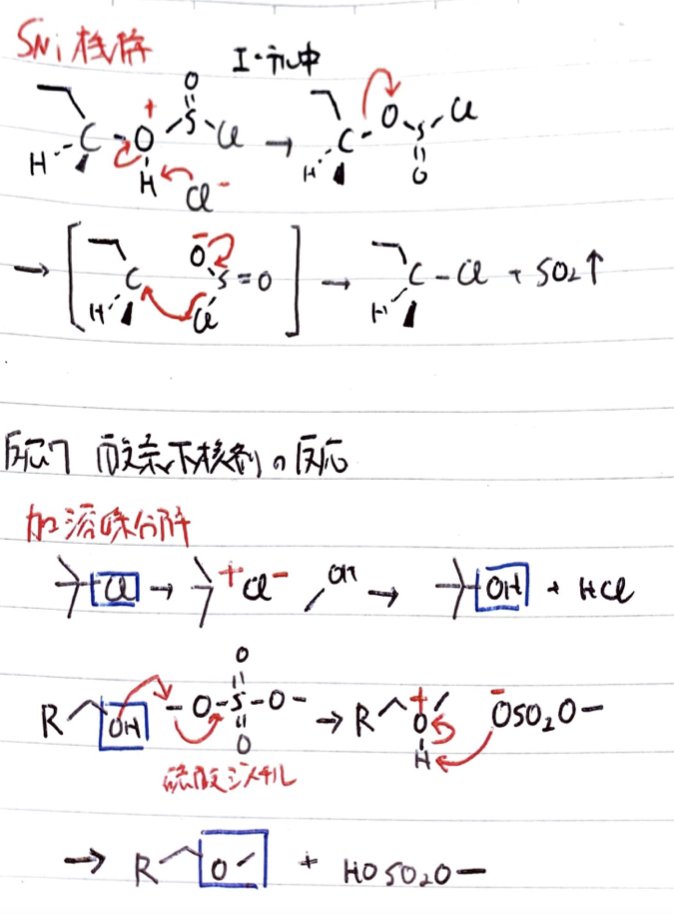 SNi 機構 エーテル中
O
+ S
C - O Cl → C - O S Cl
H H Cl- H O
→ [ C O- S=O ] → C-Cl + SO2↑
H Cl H
反応7 酸素求核剤の反応
加溶媒分解
Cl → + Cl- OH → OH + HCl
O
R OH -O-S-O- → R O+ -OSO2O-
O H
硫酸ジメチル
→ R O + HOSO2O-